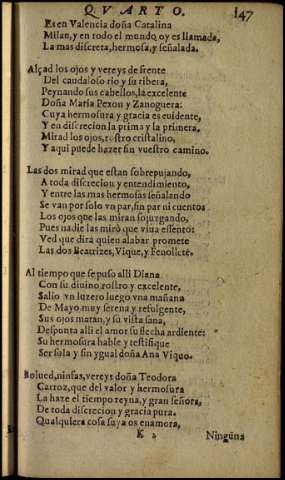 QVARTO. 147
Es en Valencia doña Catalina
Milan, y en todo el mundo oy es llamada,
La mas discreta, hermosa, y señalada.
Alçad los ojos y vereys de frente
Del caudaloso rio y su ribera,
Peynando sus cabellos, la excelente
Doña Maria Pexon y Zanoguera:
Cuya hermosura y gracia es euidente,
Y en discrecion la prima y la primera.
Mirad los ojos, rostro cristalino,
Y aqui puede hazer fin vuestro camino.
Las dos mirad que estan sobrepujando,
A toda discrecion y entendimiento,
Y entre las mas hermosas señalando
Se van por solo vn par, sin par ni cuento:
Los ojos que las miran sojuzgando,
Pues nadie las mirò que viua essento:
Ved que dira quien alabar promete
Las dos Beatrizes, Vique, y Fenollete.
Al tiempo que se puso alli Diana
Con su diuino rostro y excelente,
Salio vn luzero luego vna mañana
De Mayo muy serena y refulgente,
Sus ojos matan, y su vista sana,
Despunta alli el amor su flecha ardiente:
Su hermosura hable y testifique
Ser sola y sin ygual doña Ana Vique.
Bolued, ninfas, vereys doña Teodora
Carroz, que del valor y hermosura
La haze el tiempo reyna, y gran señora,
De toda discrecion y gracia pura.
Qualquiera cosa suya os enamora,
K 2 Ningūna